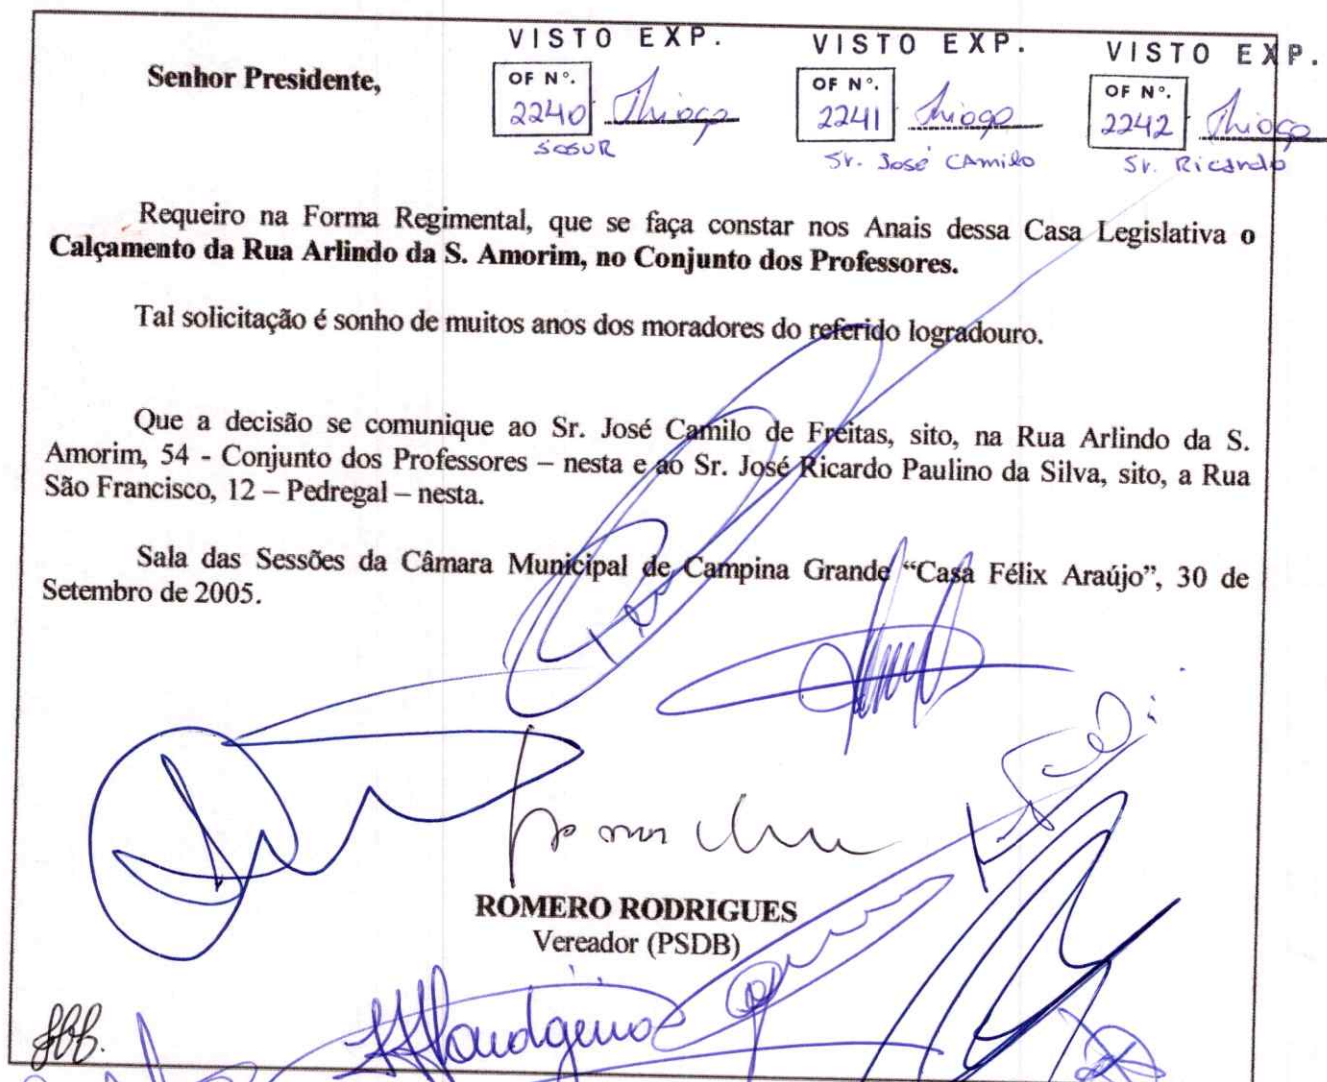 VISTO EXP.
VISTO EXP.
VISTO EXP.
Senhor Presidente,
OF Nº.
2240 Thiago
SOSUR
OF Nº.
2241 Thiago
Sr. José Camilo
OF Nº.
2242 Thiago
Sr. Ricardo
Requeiro na Forma Regimental, que se faça constar nos Anais dessa Casa Legislativa o
Calçamento da Rua Arlindo da S. Amorim, no Conjunto dos Professores.
Tal solicitação é sonho de muitos anos dos moradores do referido logradouro.
Que a decisão se comunique ao Sr. José Camilo de Freitas, sito, na Rua Arlindo da S.
Amorim, 54 - Conjunto dos Professores – nesta e ao Sr. José Ricardo Paulino da Silva, sito, a Rua
São Francisco, 12 – Pedregal – nesta.
Sala das Sessões da Câmara Municipal de Campina Grande “Casa Félix Araújo”, 30 de
Setembro de 2005.
ROMERO RODRIGUES
Vereador (PSDB)